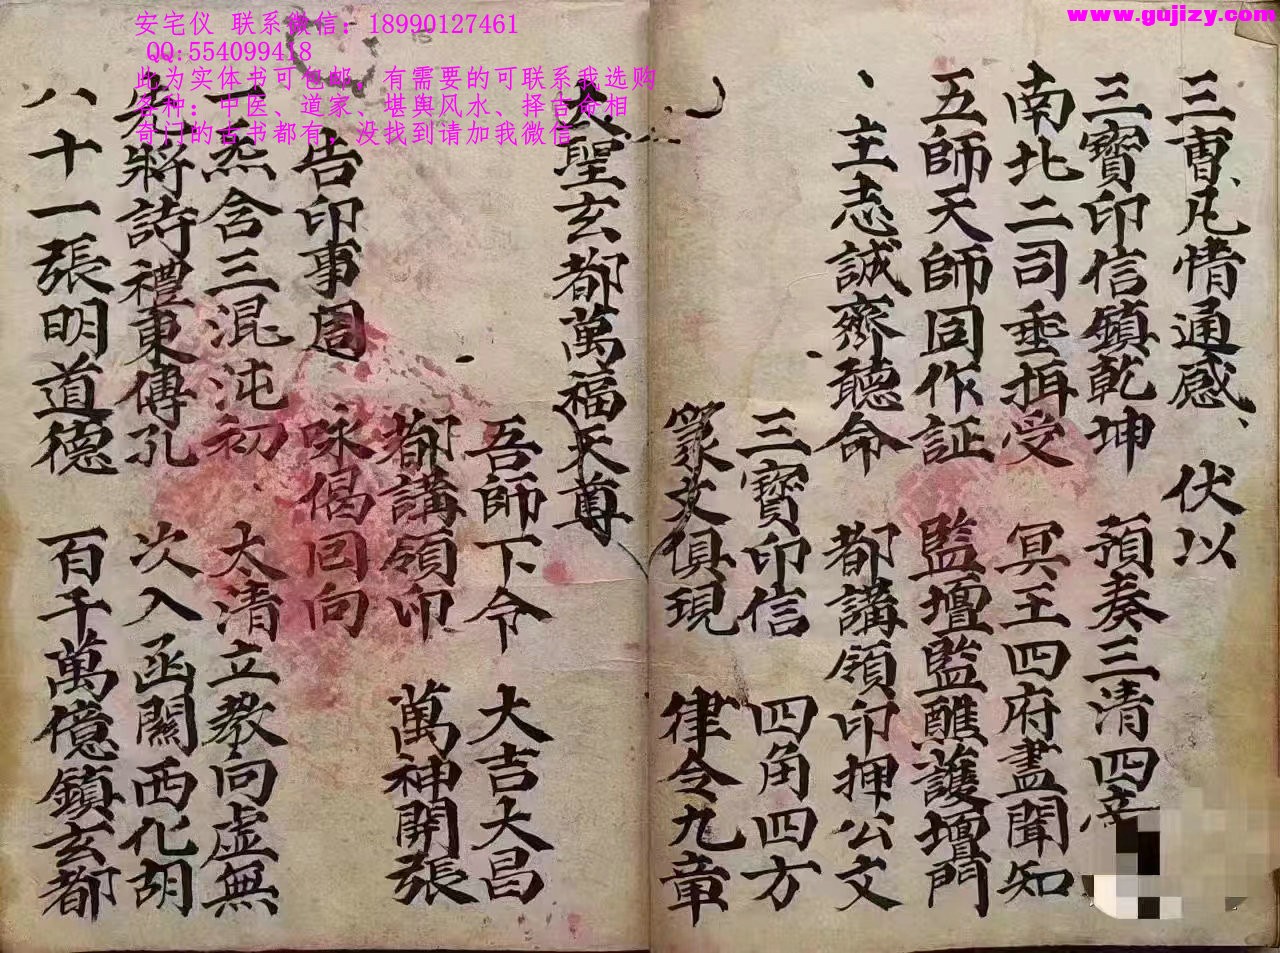 安宅仪 联系微信：18990127461
QQ:554099418
此为实体书可包邮，有需要的可联系我选购
各种：中医、道家、堪舆风水、择吉命相
奇门的古书都有，没找到请加我微信
www.gujizy.com
三曹凡情通感 伏以
三寳印信鎮乾坤 預奏三清四
南北二司垂拱受 冥王四府盡聞知
五師天師同作証 監壇監醮護壇門
主志誠齊聽命 都講領印押公文
三寳印信 四角四方
篆文俱現 律令九章
大聖玄都萬福天尊
吾師下令 大吉大昌
都講領印 萬神開張
告印事周 咏偈回向
一炁含三混沌初 太清立教向虚無
先將詩禮東傳孔 次入函關西化胡
八十一張明道德 百千萬億鎮玄都